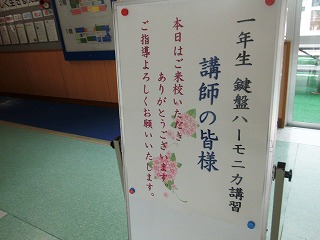 一年生 鍵盤ハーモニカ講習
講師の皆様
本日はご来校いただき
ありがとうございます
ご指導よろしくお願いいたします。